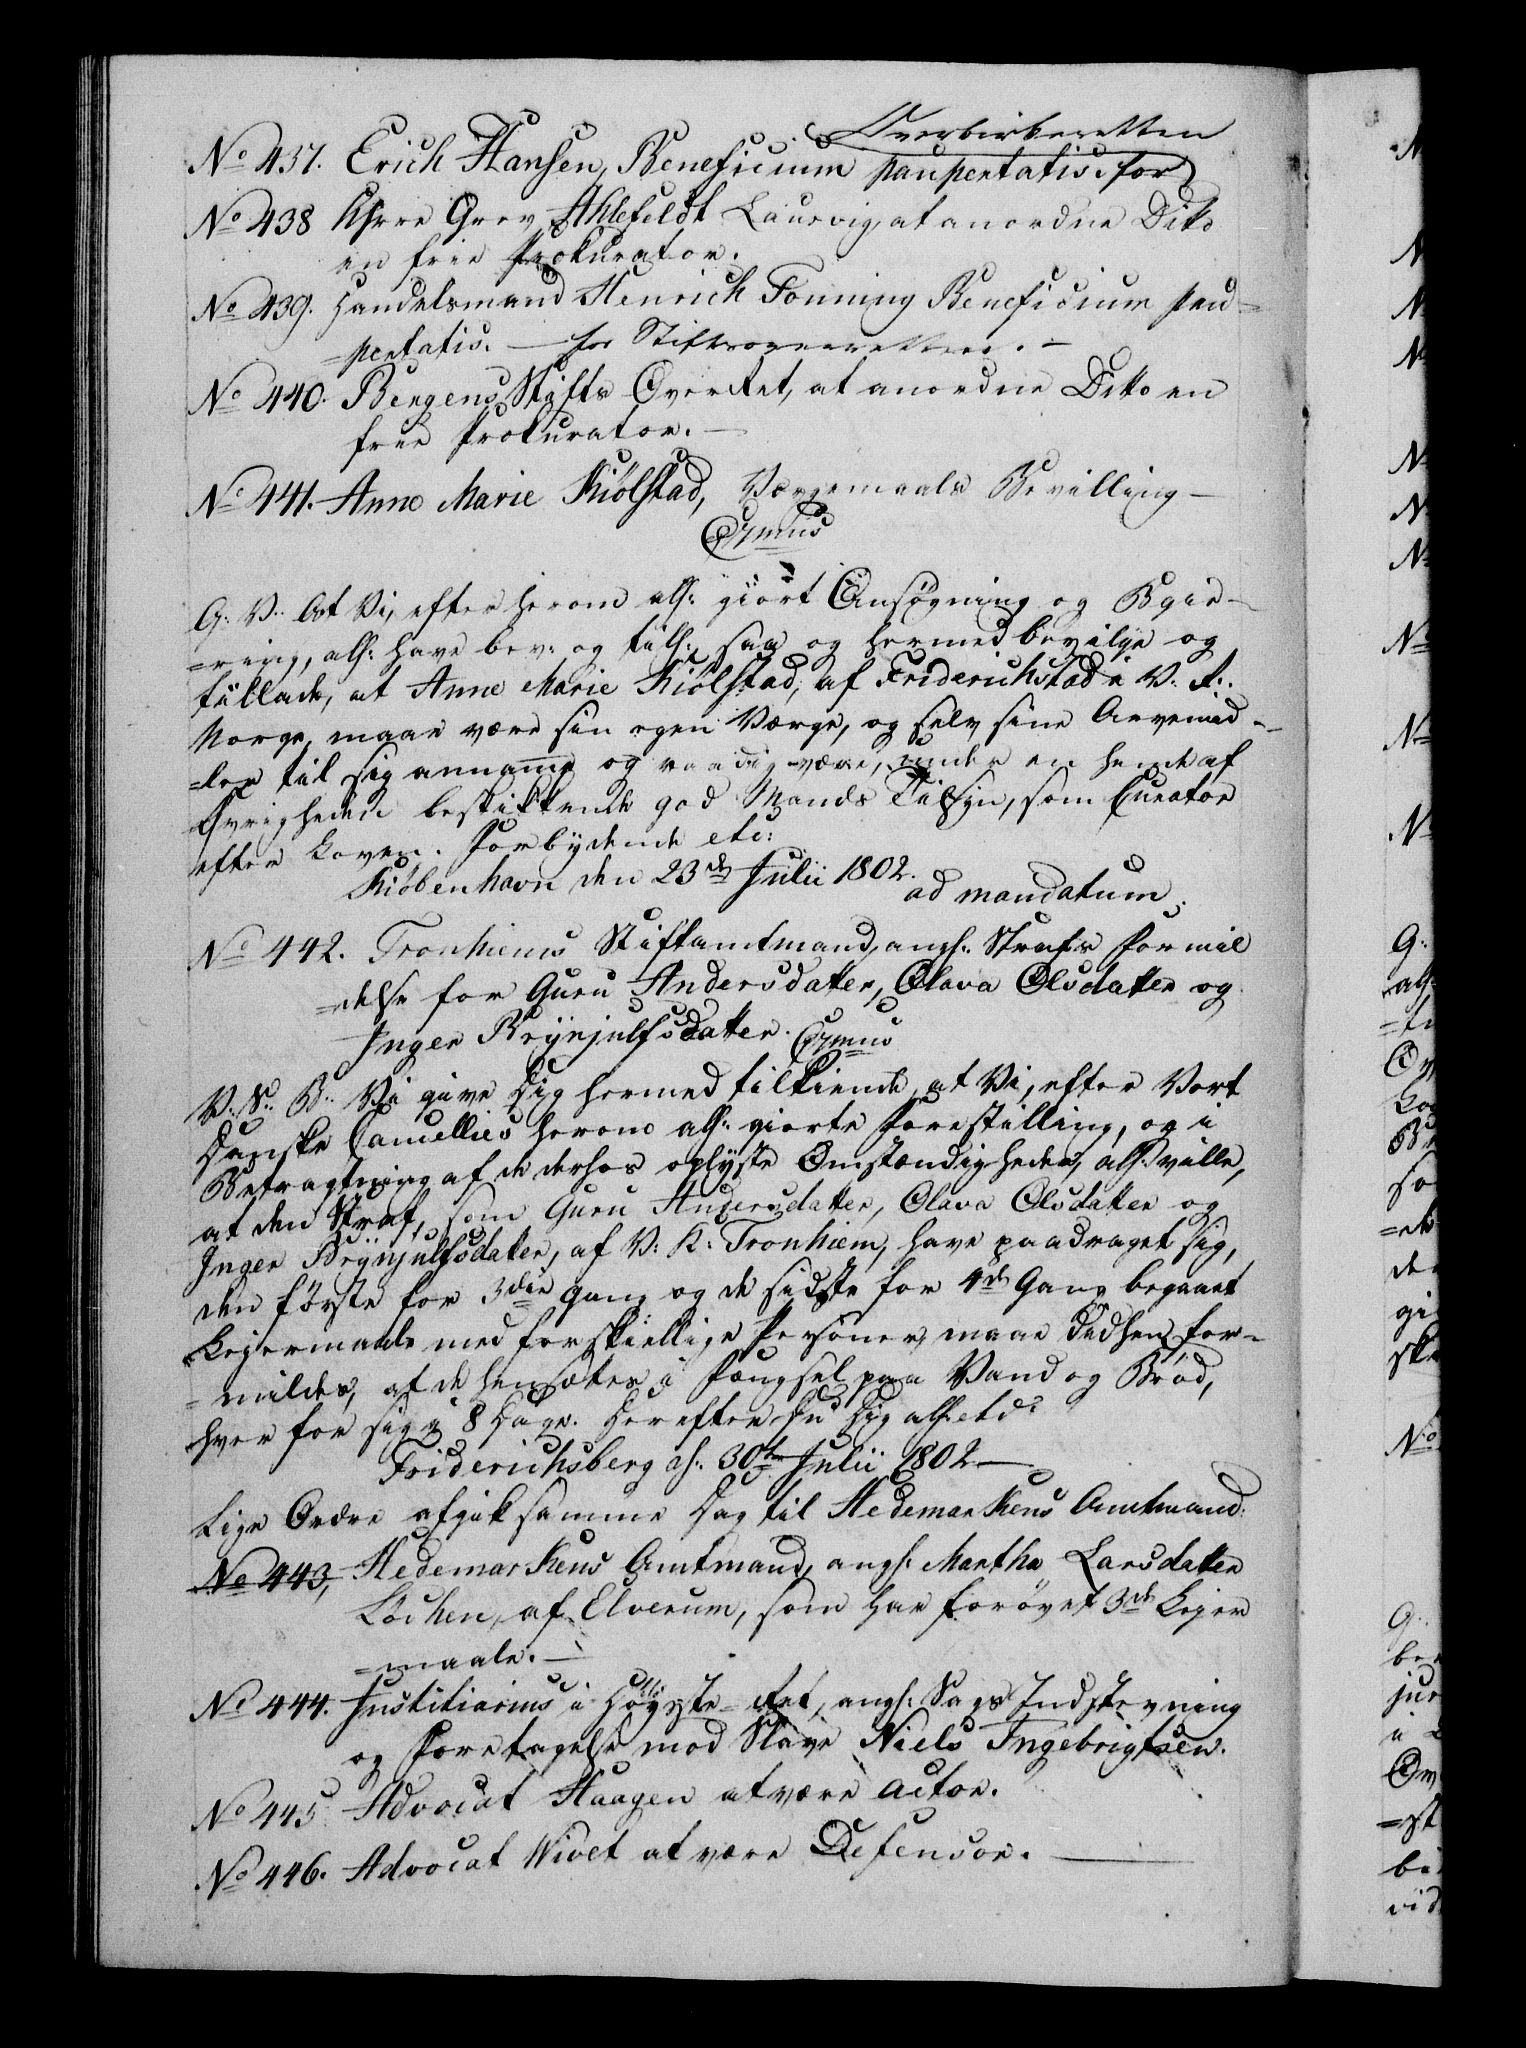 Overbirkeretten
No 437. Erich Hansen, Beneficium paupertatis for
No 438 Herre Grev Ahlefeldt Laurvig, at anordne Dito
en frie Prokurator.
No 439. Handelsmand Henrich Fonning Beneficium pau=
=pertatis. — for Stiftsoverretten. —
No 440. Bergens Stifts OverRet, at anordne Dito en
frie Prokurator. —
No 441. Anne Marie Kiølstad, Værgemaals Bevilling —
G: V: At Vi, efter herom allh: giort Ansøgning og Begie-
=ring, allh: have bev: og tilh: saa og hermed bevilge og
tillade, at Anne Marie Kiølstad, af Friderichstad i V: R:
Norge, maae være sin egen Værge, og selv sine Arvemid-
=ler til sig annamme og raadig være, under en hende af
Øvrigheden beskikkende god Mands Tilsyn, som Curator
efter Loven. Forbydende etc:
Kiøbenhavn den 23de Julii 1802.
ad mandatum.
No 442. Tronhiems Stiftamtmand, angh: Strafs Formil
=delse for Guru Andersdatter, Olava Olsdatter og
Inger Brynjulfsdatter.
V: S: B: Vi give Dig hermed tilkiende, at Vi, efter Vort
Danske Cancellies herom allh: giorte Forestilling, og i
Betragtning af de derhos oplyste Omstændigheder, allh: ville,
at den Straf, som Guru Andersdatter, Olava Olsdatter og
Inger Brynjulfsdatter, af V: K: Tronhiem, have paadraget sig,
den første for 3die Gang og de sidste for 4de Gang begaaet
Leiermaale med forskiellige Personer, maae dedhen for-
=mildes, at de hensættes i Fængsel paa Vand og Brød,
hver for sig i 8 Dage. Herefter Du Dig allh: etc:
Friderichsberg d: 30te Julii 1802 —
Lige Ordre afgik samme Dag til Hedemarkens Amtmand:
No 443, Hedemarkens Amtmand, angh: Martha Larsdatter
Lochen, af Elverum, som har forøvet 3de Leier
=maale. —
No 444. Justitiarius i Høyeste=Ret, angh: Sags Indstevning
og Foretagelse mod Slave Niels Ingebrigtsen.
No 445 Advocat Haagen at være Actor.
No 446. Advocat Wivet at være Defensor. —